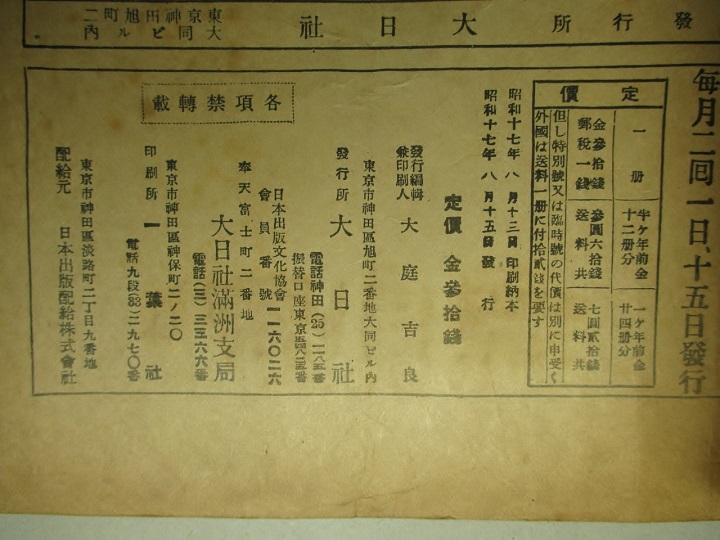 發行所 大日社
東京神田旭町二
大同ビル内
每月二回一日、十五日發行
定價
一冊
金參拾錢
郵稅一錢
半ヶ年前金
十二冊分
參圓六拾錢
送料共
一ヶ年前金
廿四冊分
七圓貳拾錢
送料共
但し特別號又は臨時號の代價は別に申受く
外國は送料一冊に付拾貳錢を要す
昭和十七年八月十三日印刷納本
昭和十七年八月十五日發行
定價金參拾錢
發行編輯
兼印刷人
大庭吉良
東京市神田區旭町二番地大同ビル内
發行所 大日社
電話神田(25)二八五番
振替口座東京
日本出版文化協會
會員番號一一六〇二六
奉天富士町二番地
大日社滿洲支局
電話(三)三三六六番
各項禁轉載
東京市神田區神保町二ノ二〇
印刷所 一葉社
電話九段(33)二九七〇番
東京市神田區淡路町二丁目九番地
配給元 日本出版配給株式會社